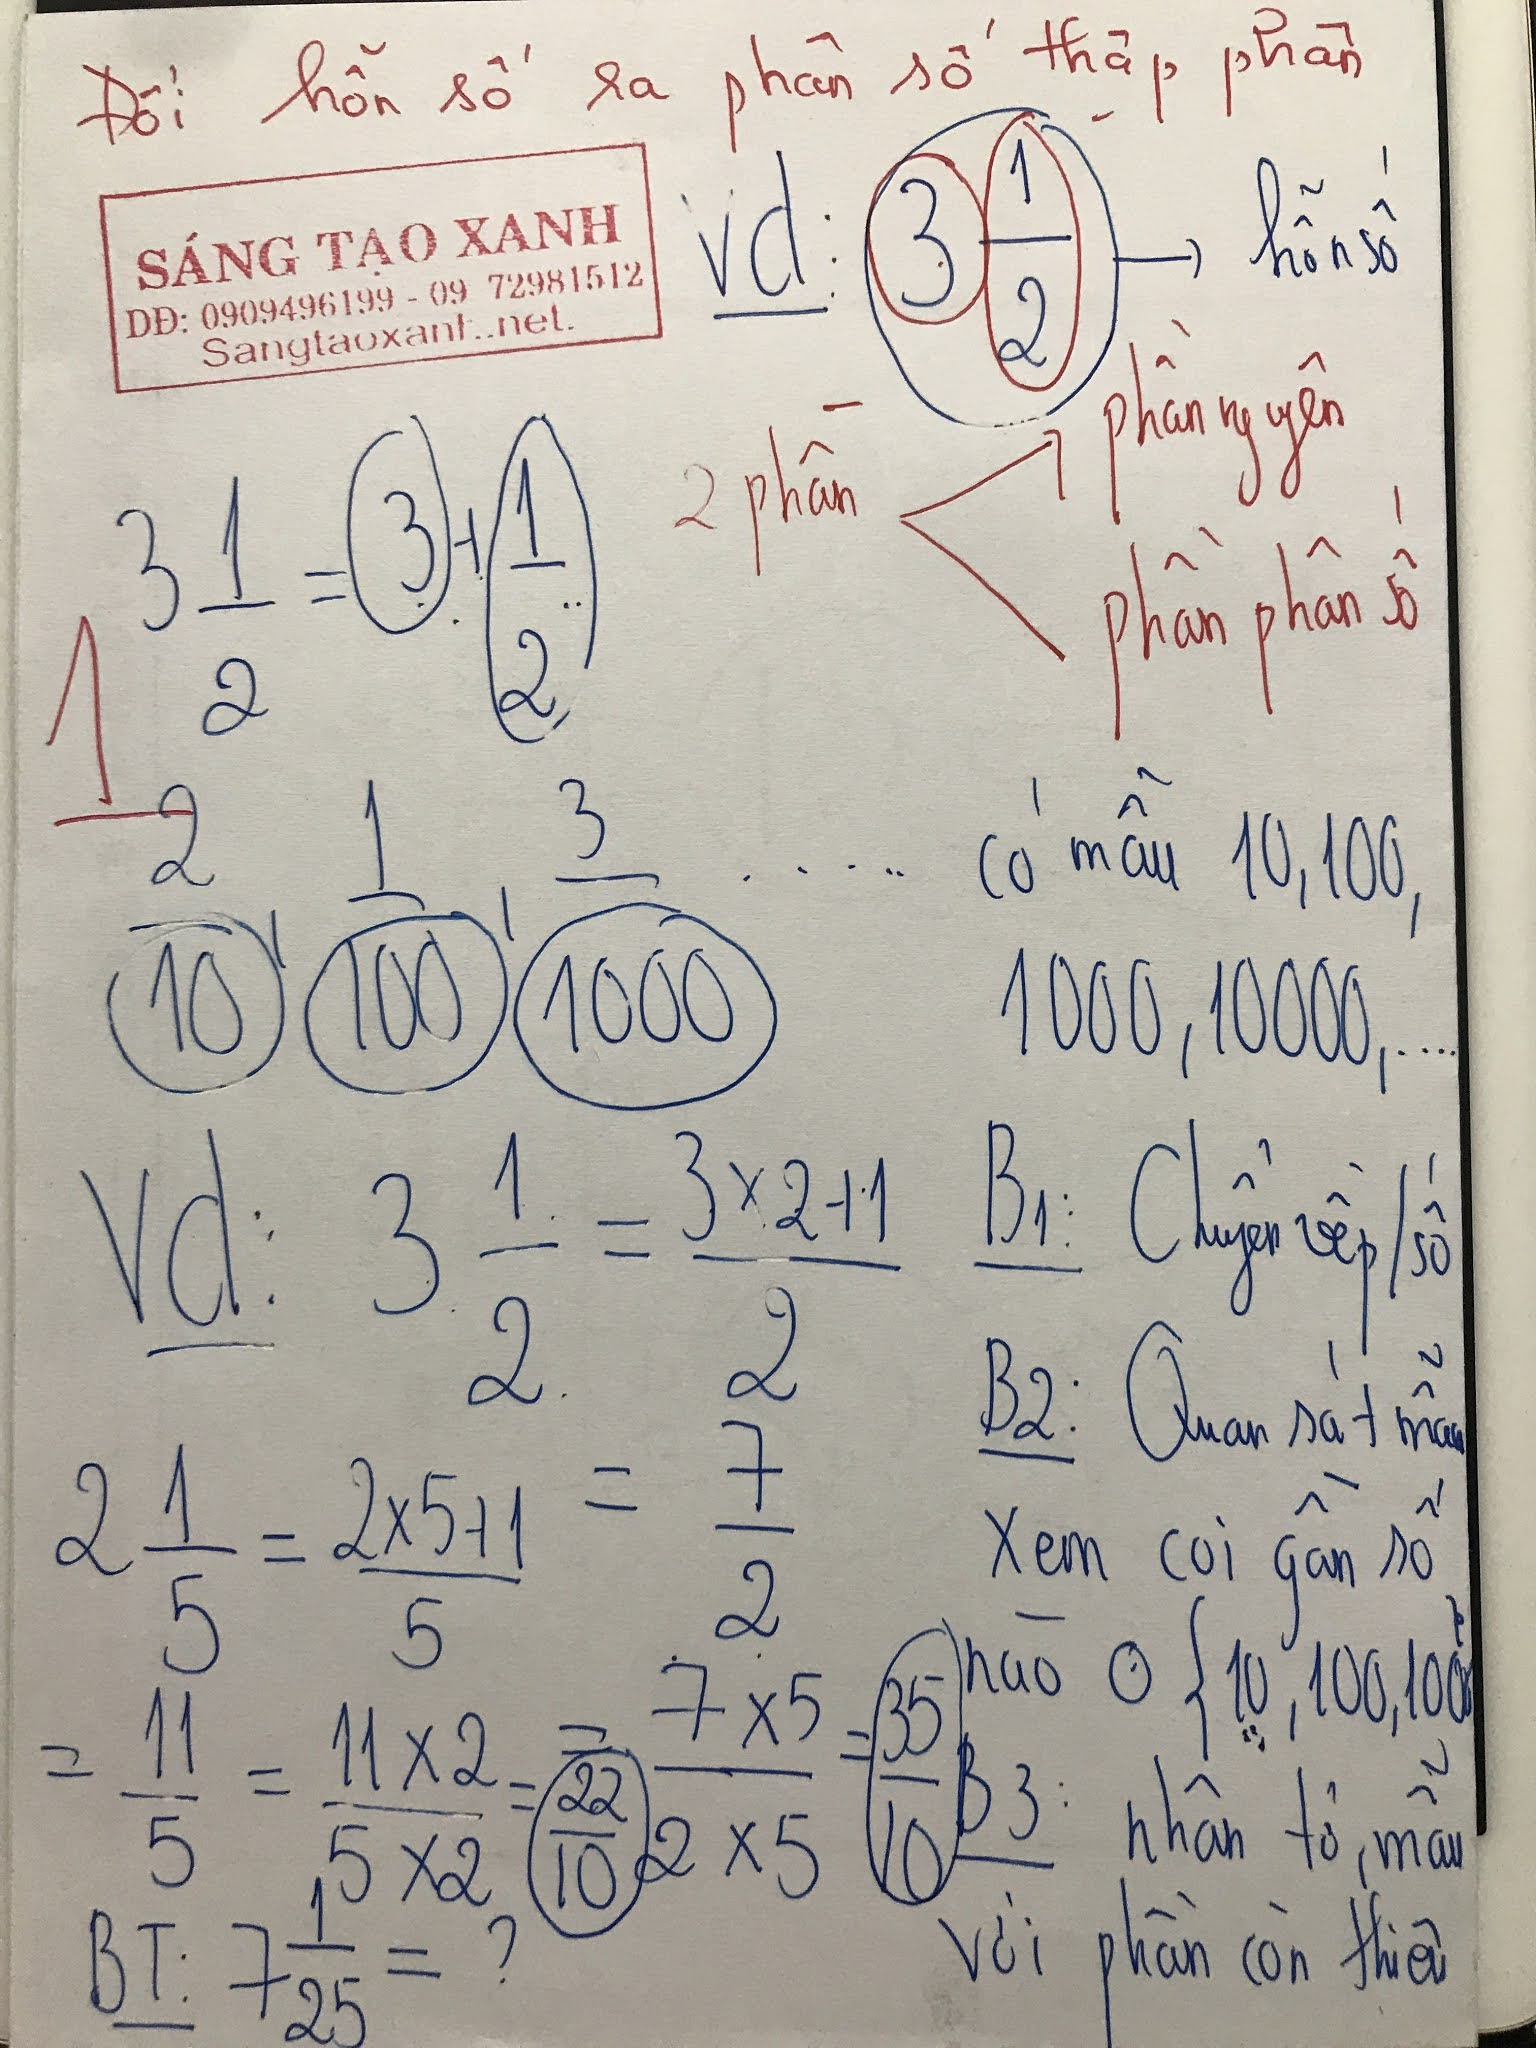 Đổi hỗn số ra phân số thập phân
SÁNG TẠO XANH
DĐ: 0909496199 - 09 72981512
Sangtaoxanh..net.
vd: 3 1/2 → hỗn số
2 phần
phần nguyên
phần phân số
3 1/2 = 3 + 1/2
1
2/10, 1/100, 3/1000 ..... có mẫu 10, 100,
1000, 10000, ....
Vd: 3 1/2 = 3 x 2 + 1 / 2
= 7/2
= 7 x 5 / 2 x 5 = 35/10
B1: Chuyển về p/số
B2: Quan sát mẫu
xem coi gần số
nào ở {10, 100, 1000
B3: nhân tử, mẫu
với phần còn thiếu
2 1/5 = 2 x 5 + 1 / 5
= 11/5 = 11 x 2 / 5 x 2 = 22/10
BT: 7 1/25 = ?